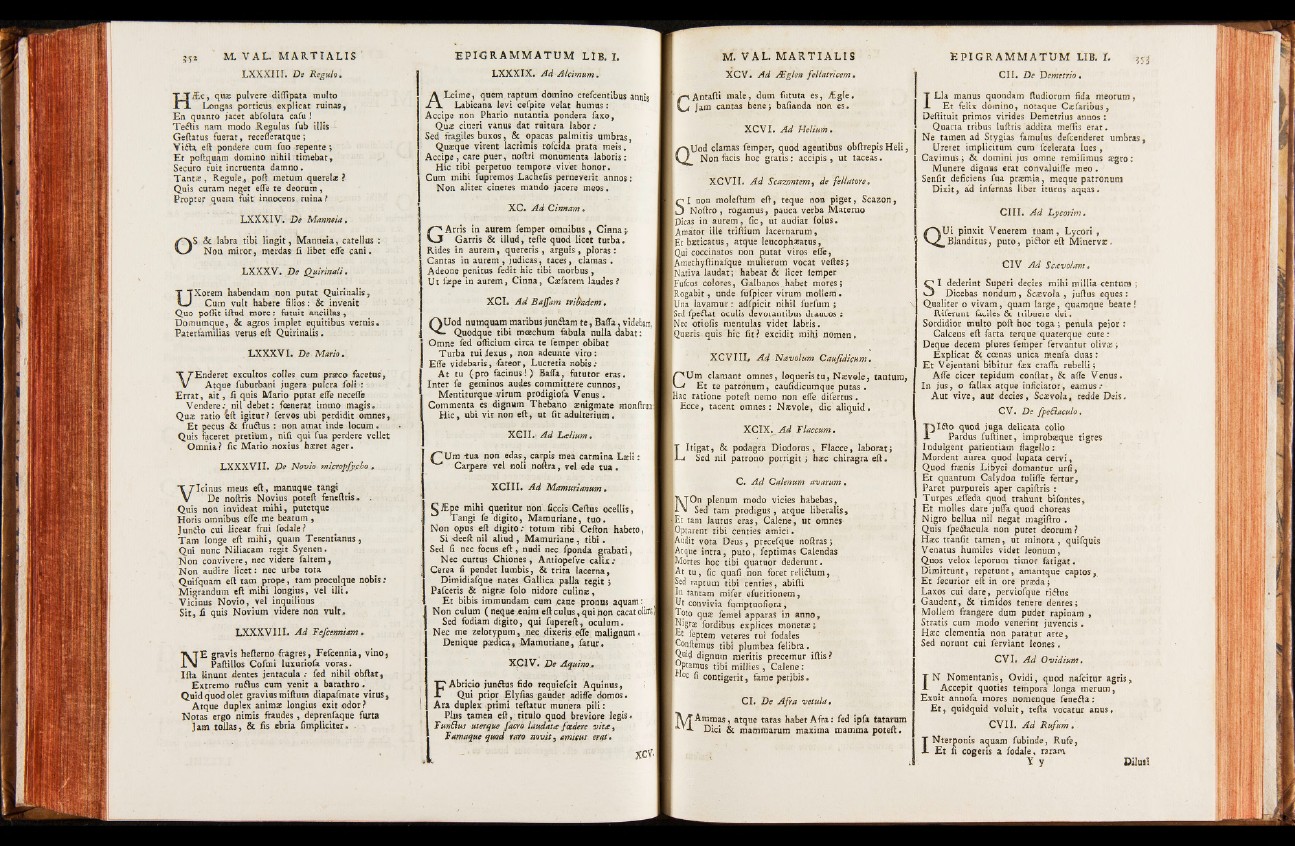 352 M. VAL. MARTIALIS
LXXXIII. De Regulo.
HÆc, quæ pulvere diſſipata multo
Longas porticus explicat ruinas,
En quanto jacet abſoluta caſu!
Tectis nam modo Regulus ſub illis
Geſtatus fuerat, receſſeratque;
Victa eſt pondere cum ſuo repente;
Et poſtquam domino nihil timebat,
Securo ruit incruenta damno.
Tantæ, Regule, poſt metum querelæ?
Quis curam neget eſſe te deorum,
Propter quem fuit innocens ruina?
LXXXIV. De Manneia.
OS & labra tibi lingit, Manneia, catellus:
Non miror, merdas ſi libet eſſe cani.
LXXXV. De Quirinali.
UXorem habendam non putat Quirinalis,
Cum vult habere filios: & invenit
Quo poſſit iſtud more: futuit ancillas,
Domumque, & agros implet equitibus vernis.
Paterfamilias verus eſt Quirinalis.
LXXXVI. De Mario.
VEnderet excultos colles cum præco facetus,
Atque ſuburbani jugera pulcra ſoli:
Errat, ait, ſi quis Mario putat eſſe neceſſe
Vendere; nil debet: fœnerat immo magis.
Quæ ratio eſt igitur? ſervos ubi perdidit omnes,
Et pecus & fructus: non amat inde locum.
Quis faceret pretium, niſi qui ſua perdere vellet
Omnia? ſic Mario noxius hæret ager.
LXXXVII. De Novio micropſycho.
VIcinus meus eſt, manuque tangi
De noſtris Novius poteſt feneſtris.
Quis non invideat mihi, putetque
Horis omnibus eſſe me beatum,
Juncto cui liceat frui ſodale?
Tam longe eſt mihi, quam Terentianus,
Qui nunc Niliacam regit Syenen.
Non convivere, nec videre ſaltem,
Non audire licet: nec urbe tota
Quiſquam eſt tam prope, tam proculque nobis:
Migrandum eſt mihi longius, vel illi.
Vicinus Novio, vel inquilinus
Sit, ſi quis Novium videre non vult.
LXXXVIII. Ad Feſcenniam.
NE gravis heſterno fragres, Feſcennia, vino,
Paſtillos Coſmi luxurioſa voras.
Iſta linunt dentes jentacula: ſed nihil obſtat,
Extremo ructus cum venit a barathro.
Quid quod olet gravius miſtum diapaſmate virus,
Atque duplex animæ longius exit odor?
Notas ergo nimis fraudes, deprenſaque furta
Jam tollas, & ſis ebria ſimpliciter.
EPIGRAMMATUM LIB. I.
LXXXIX. Ad Alcimum.
ALcime, quem raptum domino creſcentibus annis
Labicana levi ceſpite velat humus:
Accipe non Phario nutantia pondera ſaxo,
Quæ cineri vanus dat ruitura labor:
Sed fragiles buxos, & opacas palmitis umbras,
Quæque virent lacrimis roſcida prata meis.
Accipe, care puer, noſtri monumenta laboris:
Hic tibi perpetuo tempore vivet honor.
Cum mihi ſupremos Lacheſis perneverit annos:
Non aliter cineres mando jacere meos.
XC. Ad Cinnam.
GArris in aurem ſemper omnibus, Cinna;
Garris & illud, teſte quod licet turba.
Rides in aurem, quereris, arguis, ploras:
Cantas in aurem, judicas, taces, clamas.
Adeone penitus ſedit hic tibi morbus,
Ut ſæpe in aurem, Cinna, Cæſarem laudes?
XCI. Ad Baſſam tribadem.
QUod numquam maribus junctam te, Baſſa, videbam,
Quodque tibi mœchum fabula nulla dabat:
Omne ſed officium circa te ſemper obibat
Turba tui ſexus, non adeunte viro:
Eſſe videbaris, fateor, Lucretia nobis:
At tu (pro facinus!) Baſſa, fututor eras.
Inter ſe geminos audes committere cunnos,
Mentiturque virum prodigioſa Venus.
Commenta es dignum Thebano ænigmate monſtrum
Hic, ubi vir non eſt, ut ſit adulterium.
XCII. Ad Lælium.
CUm tua non edas, carpis mea carmina Læli:
Carpere vel noli noſtra, vel ede tua.
XCIII. Ad Mamurianum.
SÆpe mihi queritur non ſiccis Ceſtus ocellis,
Tangi ſe digito, Mamuriane, tuo.
Non opus eſt digito: totum tibi Ceſton habeto,
Si deeſt nil aliud, Mamuriane, tibi.
Sed ſi nec focus eſt, nudi nec ſponda grabati,
Nec curtus Chiones, Antiopeſve calix:
Cerea ſi pendet lumbis, & trita lacerna,
Dimidiaſque nates Gallica palla tegit;
Paſceris & nigræ ſolo nidore culinæ,
Et bibis immundam cum cane pronus aquam:
Non culum (neque enim eſt culus, qui non cacat olim)
Sed fodiam digito, qui ſupereſt, oculum.
Nec me zelotypum, nec dixeris eſſe malignum.
Denique pædica, Mamuriane, ſatur.
XCIV. De Aquino.
FAbricio junctus fido requieſcit Aquinus,
Qui prior Elyſias gaudet adiſſe domos.
Ara duplex primi teſtatur munera pili:
Plus tamen eſt, titulo quod breviore legis.
Functus uterque ſacro laudatæ fœdere vitæ,
Famaque quod raro novit, amicus erat.
XCV.
M. VAL. MARTIALIS
XCV. Ad Æglen fellatricem.
CAntaſti male, dum fututa es, Ægle.
Jam cantas bene; baſianda non es.
XCVI. Ad Helium.
QUod clamas ſemper, quod agentibus obſtrepis Heli,
Non facis hoc gratis: accipis, ut taceas.
XCVII. Ad Scazontem, de fellatore.
SI non moleſtum eſt, teque non piget, Scazon,
Noſtro, rogamus, pauca verba Materno
Dicas in aurem, ſic, ut audiat ſolus.
Amator ille triſtium lacernarum,
Et bæticatus, atque leucophæatus,
Qui coccinatos non putat viros eſſe,
Amethyſtinaſque mulierum vocat veſtes;
Nativa laudat; habeat & licet ſemper
Fuſcos colores, Galbanos habet mores;
Rogabit, unde ſuſpicer virum mollem.
Una lavamur: adſpicit nihil ſurſum;
Sed ſpectat oculis devorantibus draucos:
Nec otioſis mentulas videt labris.
Queris quis hic ſit? excidit mihi nomen.
XCVIII. Ad Nævolum Cauſidicum.
CUm clamant omnes, loqueris tu, Nævole, tantum,
Et te patronum, cauſidicumque putas.
Hac ratione poteſt nemo non eſſe diſertus.
Ecce, tacent omnes: Nævole, dic aliquid.
XCIX. Ad Flaccum.
LItigat, & podagra Diodorus, Flacce, laborat;
Sed nil patrono porrigit; hæc chiragra eſt.
C. Ad Calenum avarum.
NOn plenum modo vicies habebas,
Sed tam prodigus, atque liberalis,
Et tam lautus eras, Calene, ut omnes
Optarent tibi centies amici.
Audit vota Deus, preceſque noſtras;
Atque intra, puto, ſeptimas Calendas
Mortes hoc tibi quatuor dederunt.
At tu, ſic quaſi non foret relictum,
Sed raptum tibi centies, abiſti
In tantam miſer eſuritionem,
Ut convivia ſumptuoſiora,
Toto quæ ſemel apparas in anno,
Nigræ ſordibus explices monetæ;
Et ſeptem veteres tui ſodales
Conſtemus tibi plumbea ſelibra.
Quid dignum meritis precemur iſtis?
Optamus tibi millies, Calene:
Hoc ſi contigerit, fame peribis.
CI. De Afra vetula.
MAmmas, atque tatas habet Afra: ſed ipſa tatarum
Dici & mammarum maxima mamma poteſt.
EPIGRAMMATUM LIB. I. 353
CII. De Demetrio.
ILla manus quondam ſtudiorum fida meorum,
Et felix domino, notaque Cæſaribus,
Deſtituit primos virides Demetrius annos:
Quarta tribus luſtris addita meſſis erat.
Ne tamen ad Stygias famulus deſcenderet umbras,
Ureret implicitum cum ſcelerata lues,
Cavimus; & domini jus omne remiſimus ægro:
Munere dignus erat convaluiſſe meo.
Senſit deficiens ſua præmia, meque patronum
Dixit, ad infernas liber iturus aquas.
CIII. Ad Lycorim.
QUi pinxit Venerem tuam, Lycori,
Blanditus, puto, pictor eſt Minervæ.
CIV Ad Scævolam.
SI dederint Superi decies mihi millia centum;
Dicebas nondum, Scævola, juſtus eques:
Qualiter o vivam, quam large, quamque beate!
Riſerunt faciles & tribuere dei.
Sordidior multo poſt hoc toga; penula pejor:
Calceus eſt ſarta terque quaterque cute:
Deque decem plures ſemper ſervantur olivæ;
Explicat & cœnas unica menſa duas:
Et Vejentani bibitur fæx craſſa rubelli;
Aſſe cicer tepidum conſtat, & aſſe Venus.
In jus, o fallax atque inficiator, eamus:
Aut vive, aut decies, Scævola, redde Deis.
CV. De ſpectaculo.
PIcto quod juga delicata collo
Pardus ſuſtinet, improbæque tigres
Indulgent patientiam flagello:
Mordent aurea quod lupata cervi,
Quod frænis Libyci domantur urſi,
Et quantum Calydon tuliſſe fertur,
Paret purpureis aper capiſtris:
Turpes eſſeda quod trahunt biſontes,
Et molles dare juſſa quod choreas
Nigro bellua nil negat magiſtro.
Quis ſpectacula non putet deorum?
Hæc tranſit tamen, ut minora, quiſquis
Venatus humiles videt leonum,
Quos velox leporum timor fatigat.
Dimittunt, repetunt, amantque captos,
Et ſecurior eſt in ore præda;
Laxos cui dare, perviosque rictus
Gaudent, & timidos tenere dentes;
Mollem frangere dum pudet rapinam,
Stratis cum modo venerint juvencis.
Hæc clementia non paratur arte,
Sed norunt cui ſerviant leones.
CVI. Ad Ovidium.
IN Nomentanis, Ovidi, quod naſcitur agris,
Accepit quoties tempora longa merum,
Exuit annoſa mores nomenque ſenecta:
Et, quidquid voluit, teſta vocatur anus.
CVII. Ad Rufum.
INterponis aquam ſubinde, Rufe,
Et ſi cogeris a ſodale, raram
Y y Dilusi